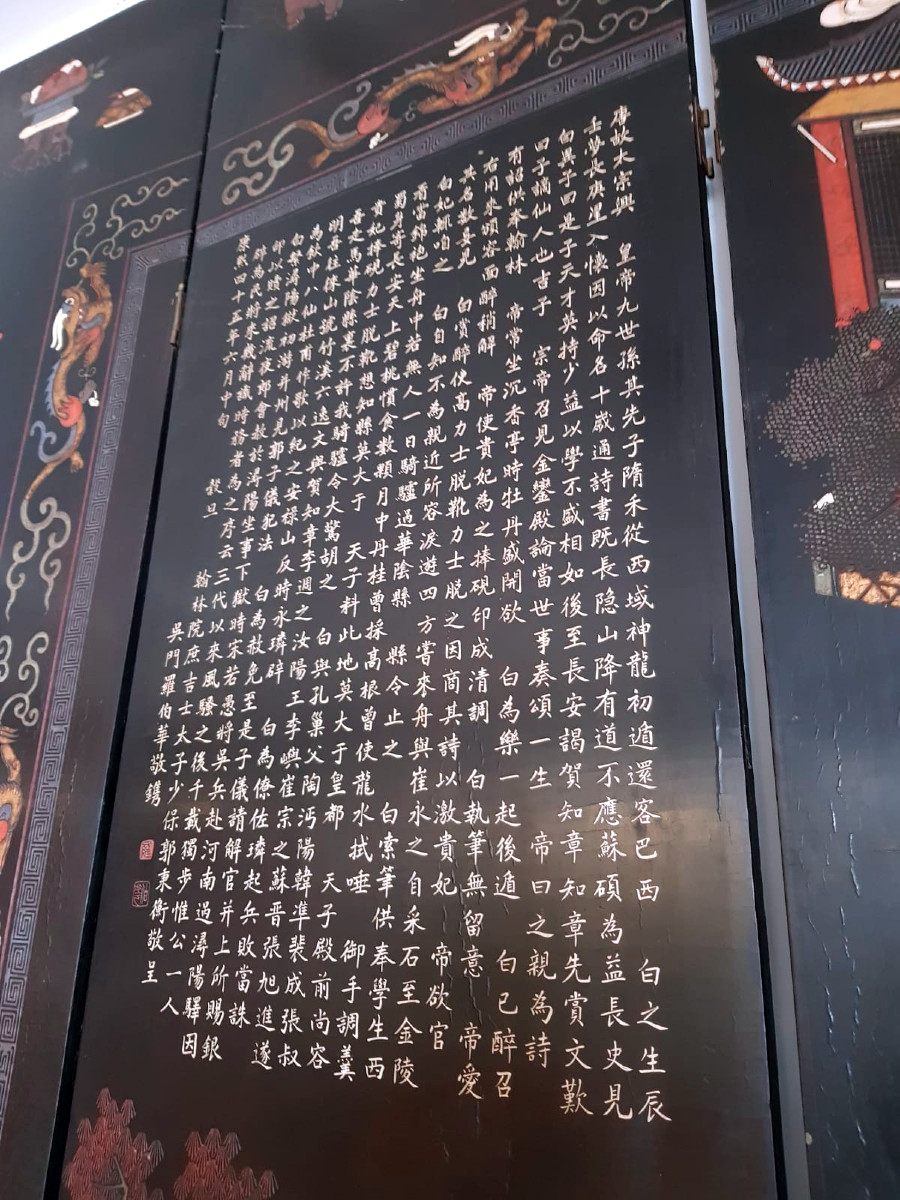 唐故太宗興 皇帝九世孫其先子隋禾從西域神龍初遁還客巴西 白之生辰
壬夢長庚星入懷因以命名十歲通詩書既長隐山降有道不應蘇碩為益長史見
白異子曰是子天才英持少益以學不盛相如後至長安謁賀知章 知章先賞文歎
曰子謫仙人也言子 宗帝召見金鑾殿論當世事奏頌一生 帝曰之親為詩
有詔供奉翰林 帝常坐沉香亭時牡丹盛開欲 白為樂一起後遁 白已醉召
右用來頌容面醉稍解 帝使貴妃為之捧硯印成清調 白執筆無留意 帝愛
其名數宴見 白賞醉使高力士脱靴力士脱之因商其詩以激貴妃 帝欲官
白妃輒咱之 白自知不為親近所容淚遊四方嘗來舟與崔水之自采石至金陵
着當錦袍坐舟中若無人一日騎驢過華陰縣 縣令止之 白索筆供奉學生西
蜀身哥長安天上碧桃慣食數顆月中丹桂曾採高根曾使龍水拭唾 御手調羹
貴妃捧硯力士脱靴想知縣莫大于 天子料此地莫大于皇都 天子殿前尚容
吾走馬華陰縣里不許我騎驢令大驚胡之 白與孔巢父陶沔陽韓準裴成張叔
明吾往徠山號竹溪六逸文與賀知章李週之汝陽王李嶼崔宗之蘇晋張旭進遂
為飲中八仙杜甫作歌以紀之安禄山反時永璘辟 白為僚佐璘起兵敗當誅
白擊潯陽獄初游并州見郭子儀犯法 白為救免至是子儀請解官并上所賜銀
印以贖之詔流夜郎會赦於潯陽坐事下獄時宋若愚將吳兵赴河南過潯陽驛因
辟為民將來幾辭識時務者為之序云三代以來風騷之後千載獨步惟公一人
康熙四十五年六月中旬 穀旦 翰林院庶吉士太子少保郭東衛敬呈
吳門羅伯華敬鐫